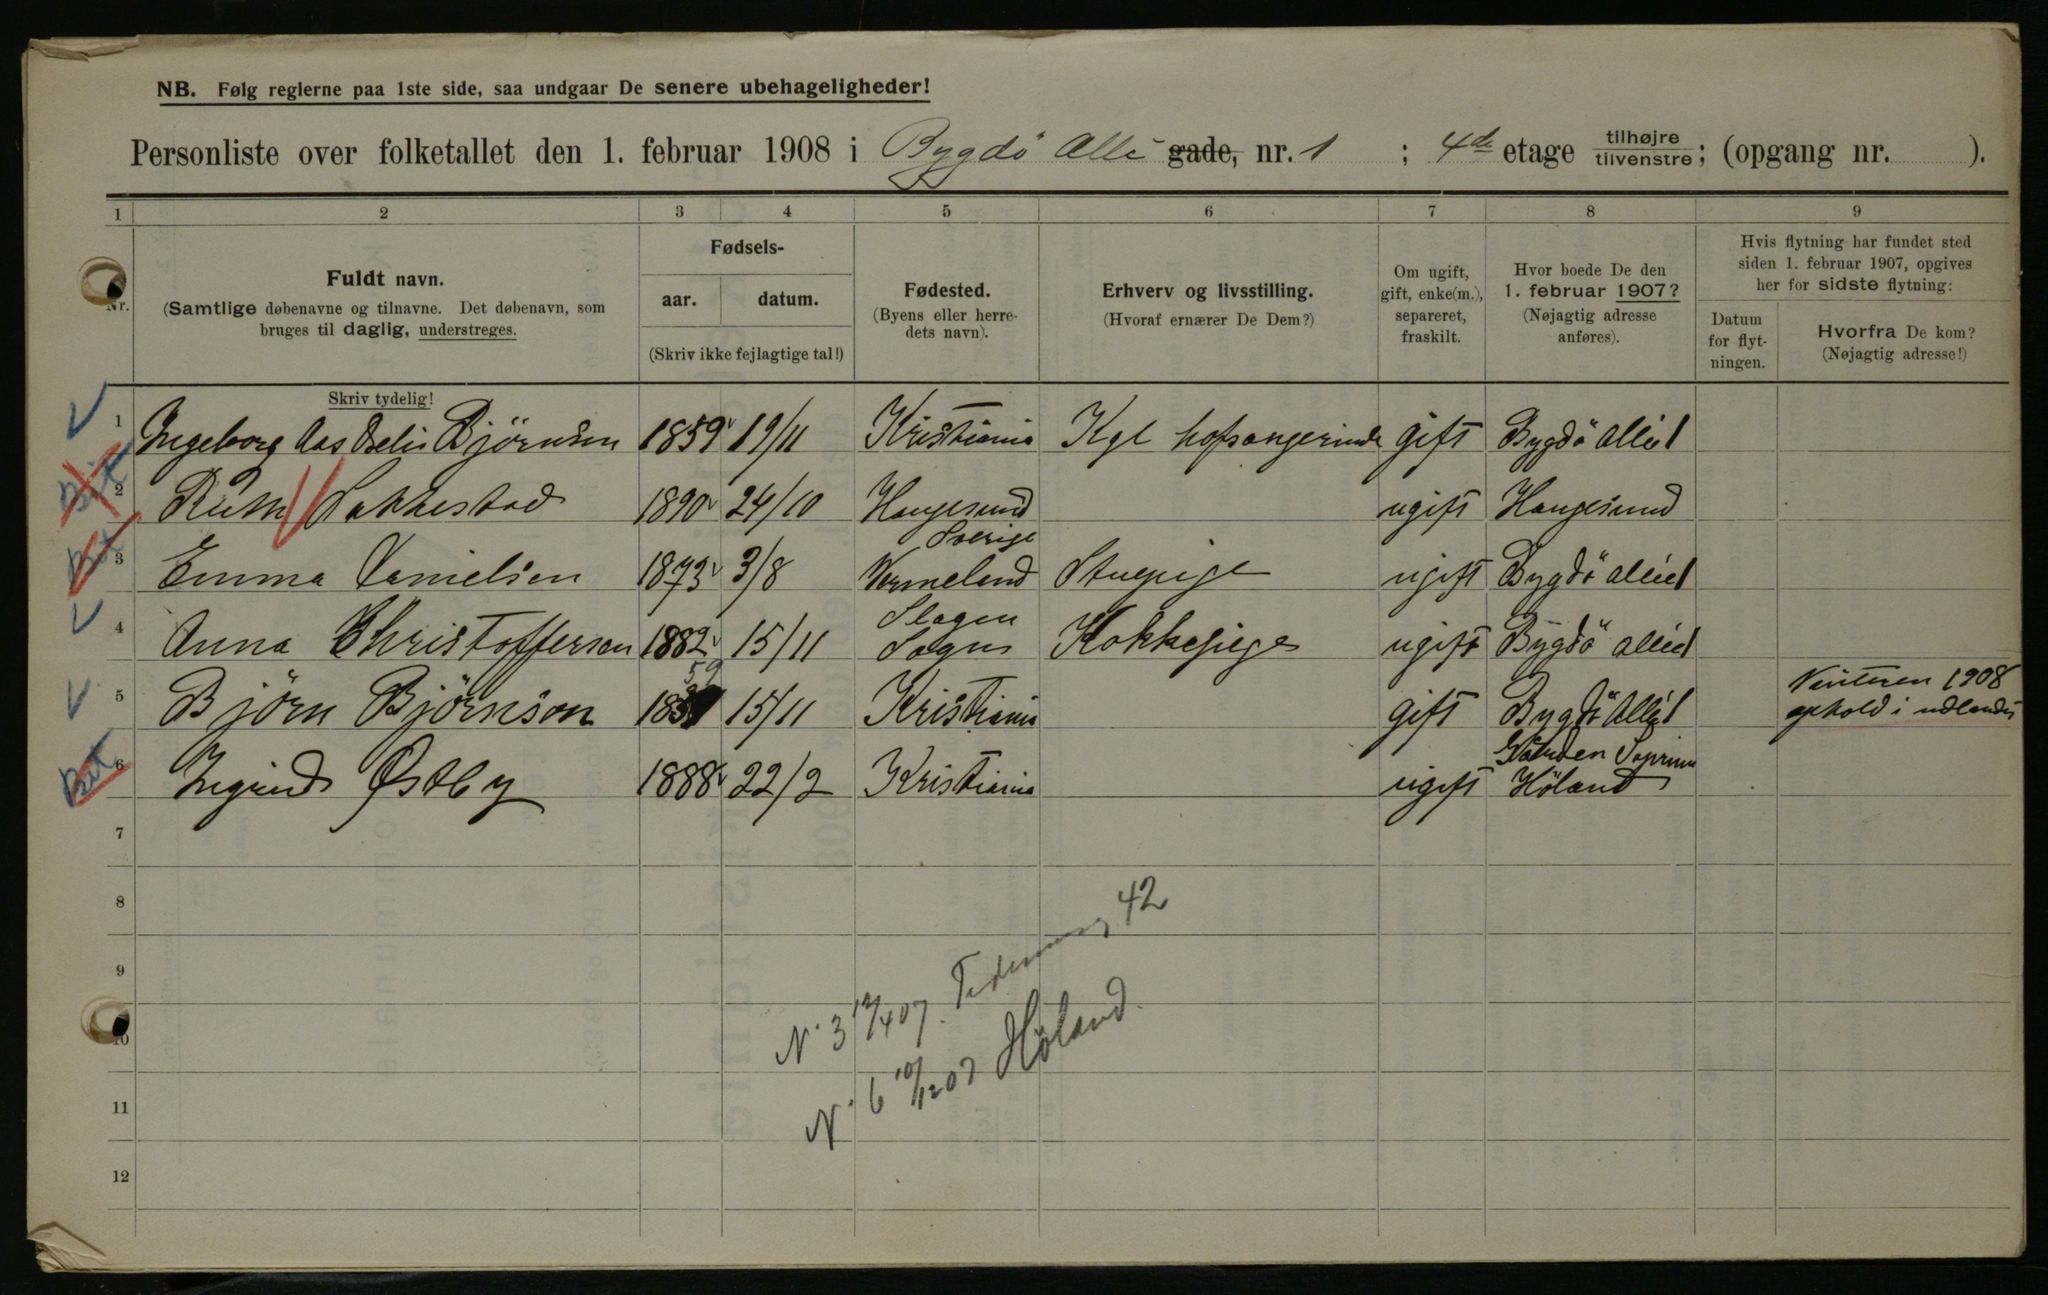 NB. Følg reglerne paa 1ste side, saa undgaar De senere ubehageligheder!
Personliste over folketallet den 1. februar 1908 i Bygdö Allé gade, nr. 1 ; 4de etage tilhøjre tilvenstre; (opgang nr. ).
1 2 3 4 5 6 7 8 9
Nr.
Fuldt navn.
(Samtlige døbenavne og tilnavne. Det døbenavn, som
bruges til daglig, understreges.
Skriv tydelig!
Fødsels-
aar. datum.
(Skriv ikke fejlagtige tal!)
Fødested.
(Byens eller herre-
dets navn).
Erhverv og livsstilling.
(Hvoraf ernærer De Dem?)
Om ugift,
gift, enke(m.),
separeret,
fraskilt.
Hvor boede De den
1. februar 1907?
(Nøjagtig adresse
anføres).
Hvis flytning har fundet sted
siden 1. februar 1907, opgives
her for sidste flytning:
Datum
for flyt-
ningen.
Hvorfra De kom?
(Nøjagtig adresse!)
1 Ingeborg Aas Björnson 1859 19/11 Kristiania Kgl hofsangerinde gift Bygdö Allé 1
Bit 2 Ruth 1890 24/10 Haugesund ugift Haugesund
Sverige
Bit 3 Emma Danielsen 1873 3/8 Vermeland Stuepige ugift Bygdö Allé 1
Slagen
4 Anna Christoffersen 1882 15/11 Sogn Kokkepige ugift Bygdö Allé 1
59
5 Björn Björnson 15/11 Kristiania gift Bygdö Allé 1 Vinteren 1908
ophold i udlandet
Gaarden
Bit 6 Ingrid Østby 1888 22/2 Kristiania ugift Höland
7
8
9
10
11
12
N. 3 12/4 07. 42
N. 6 10/12 07 Höland.